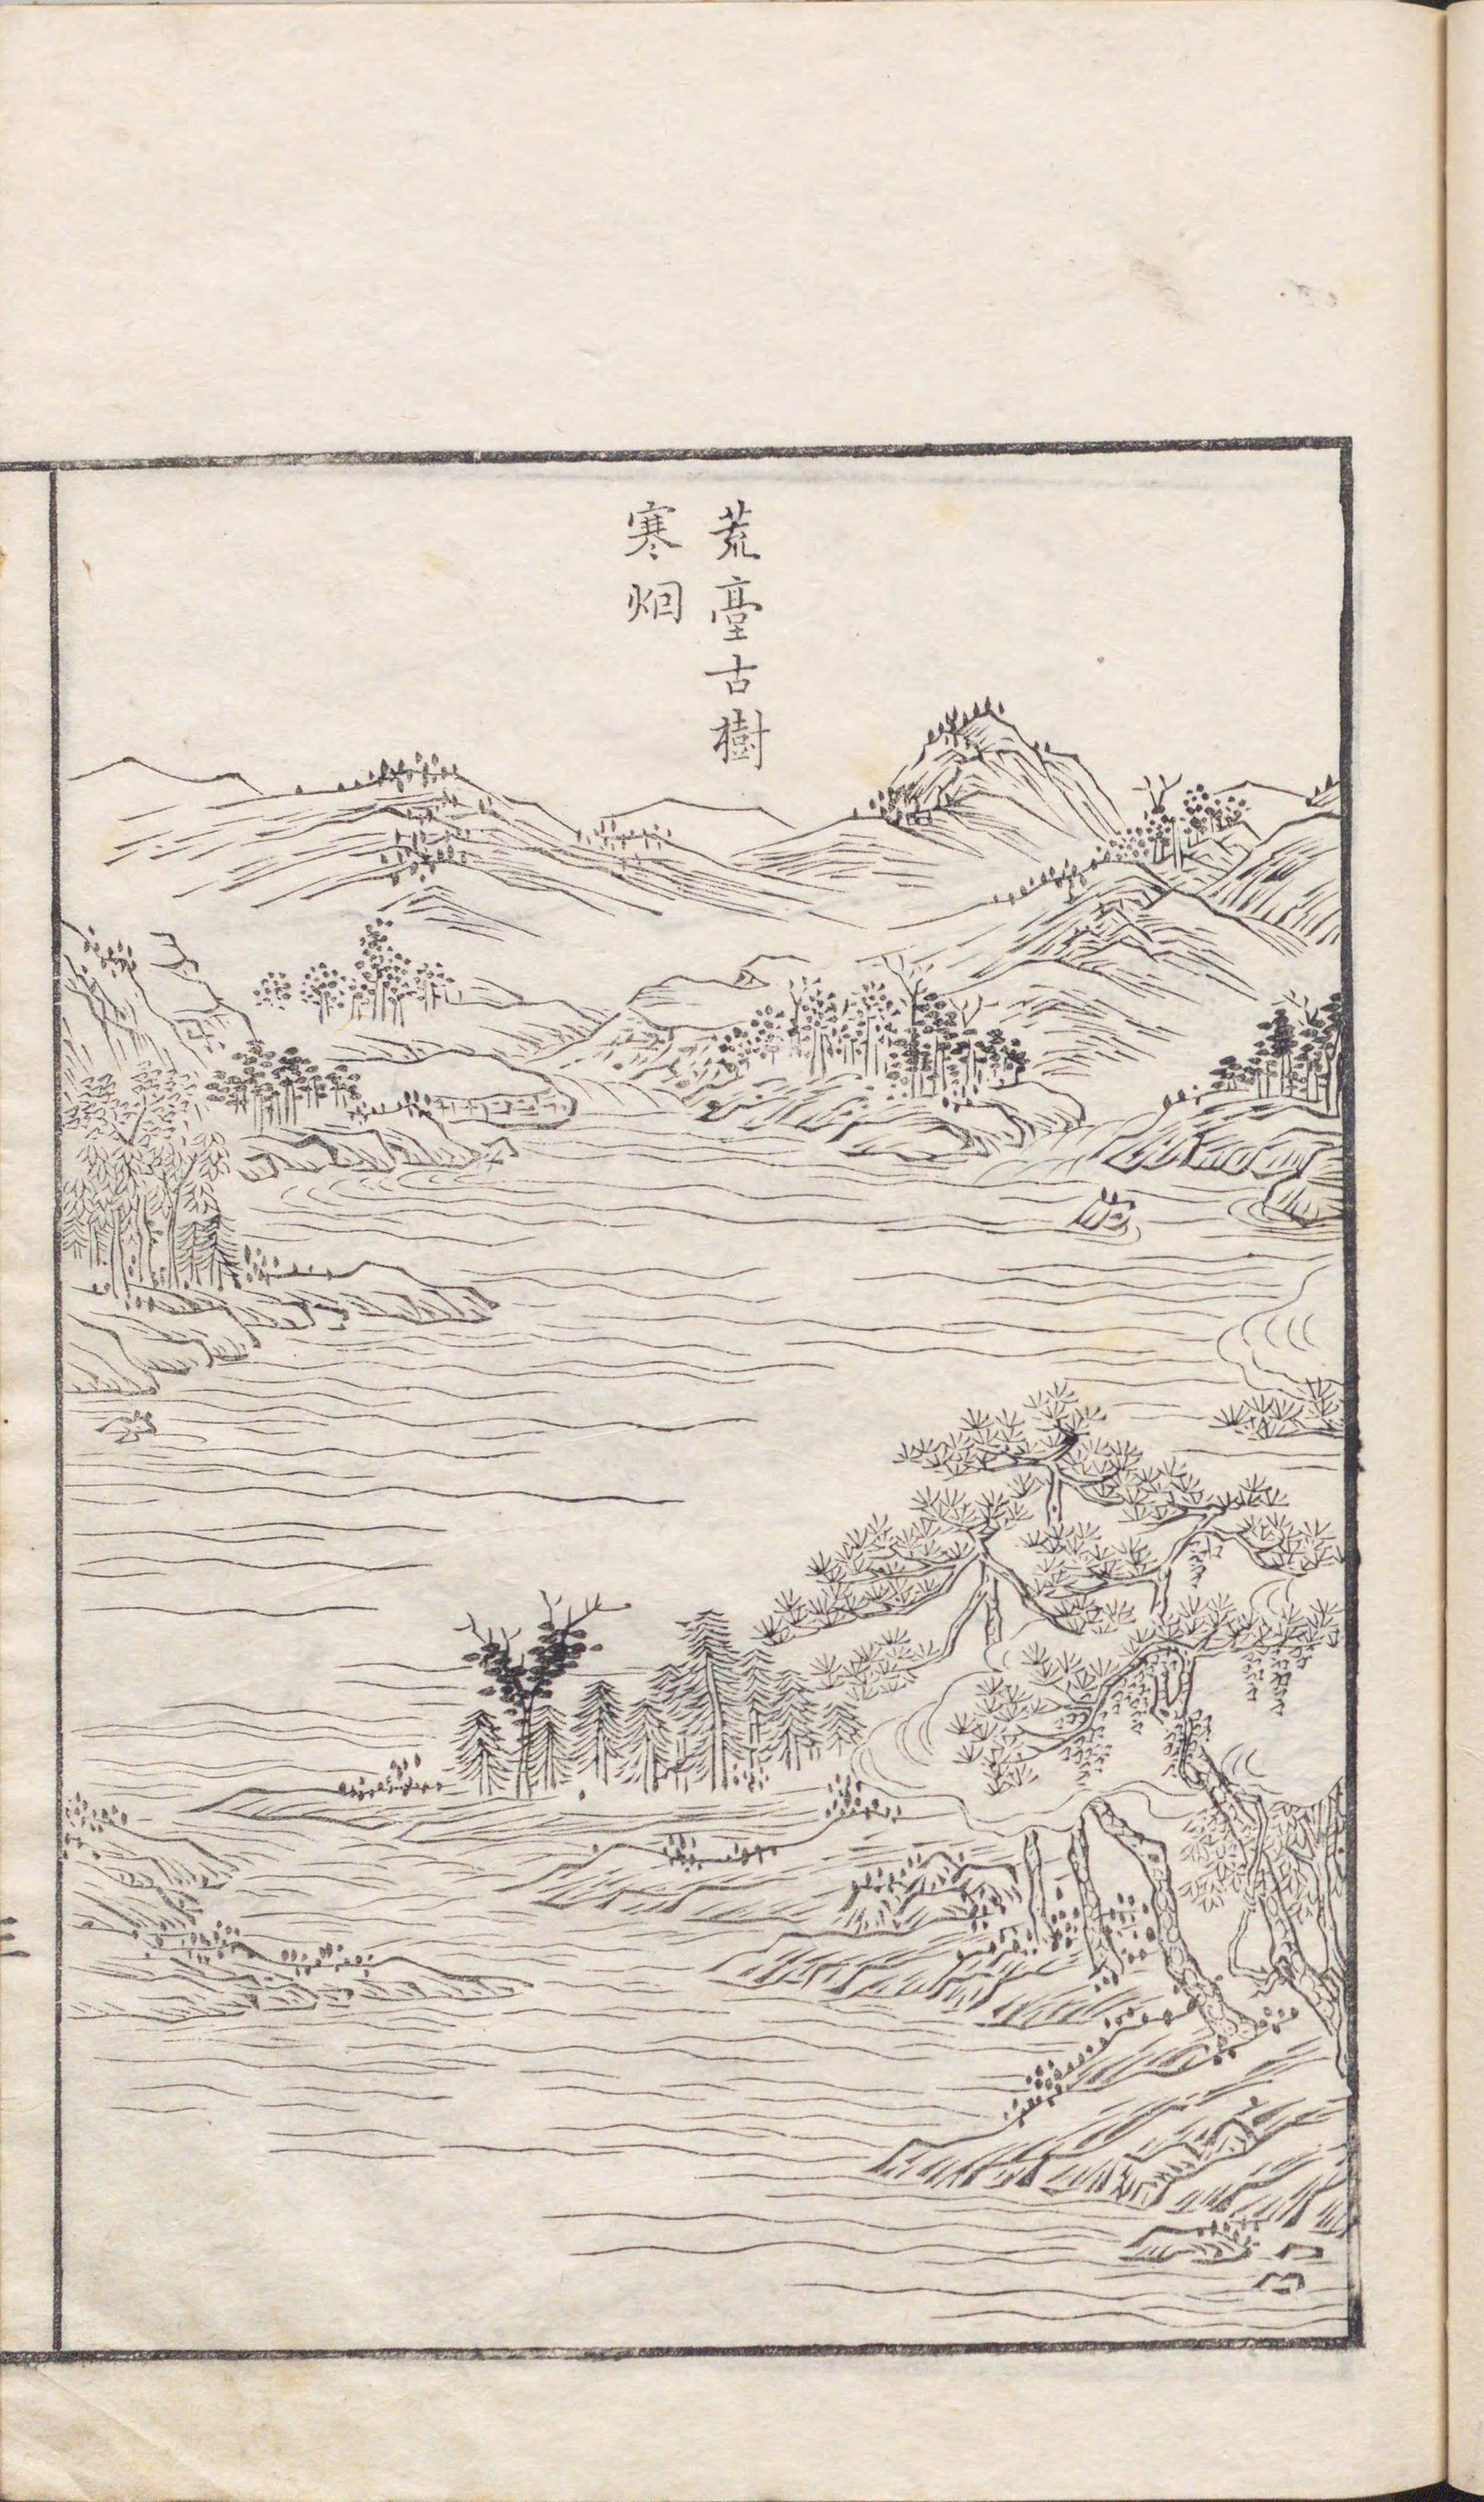 荒臺古樹
寒烟